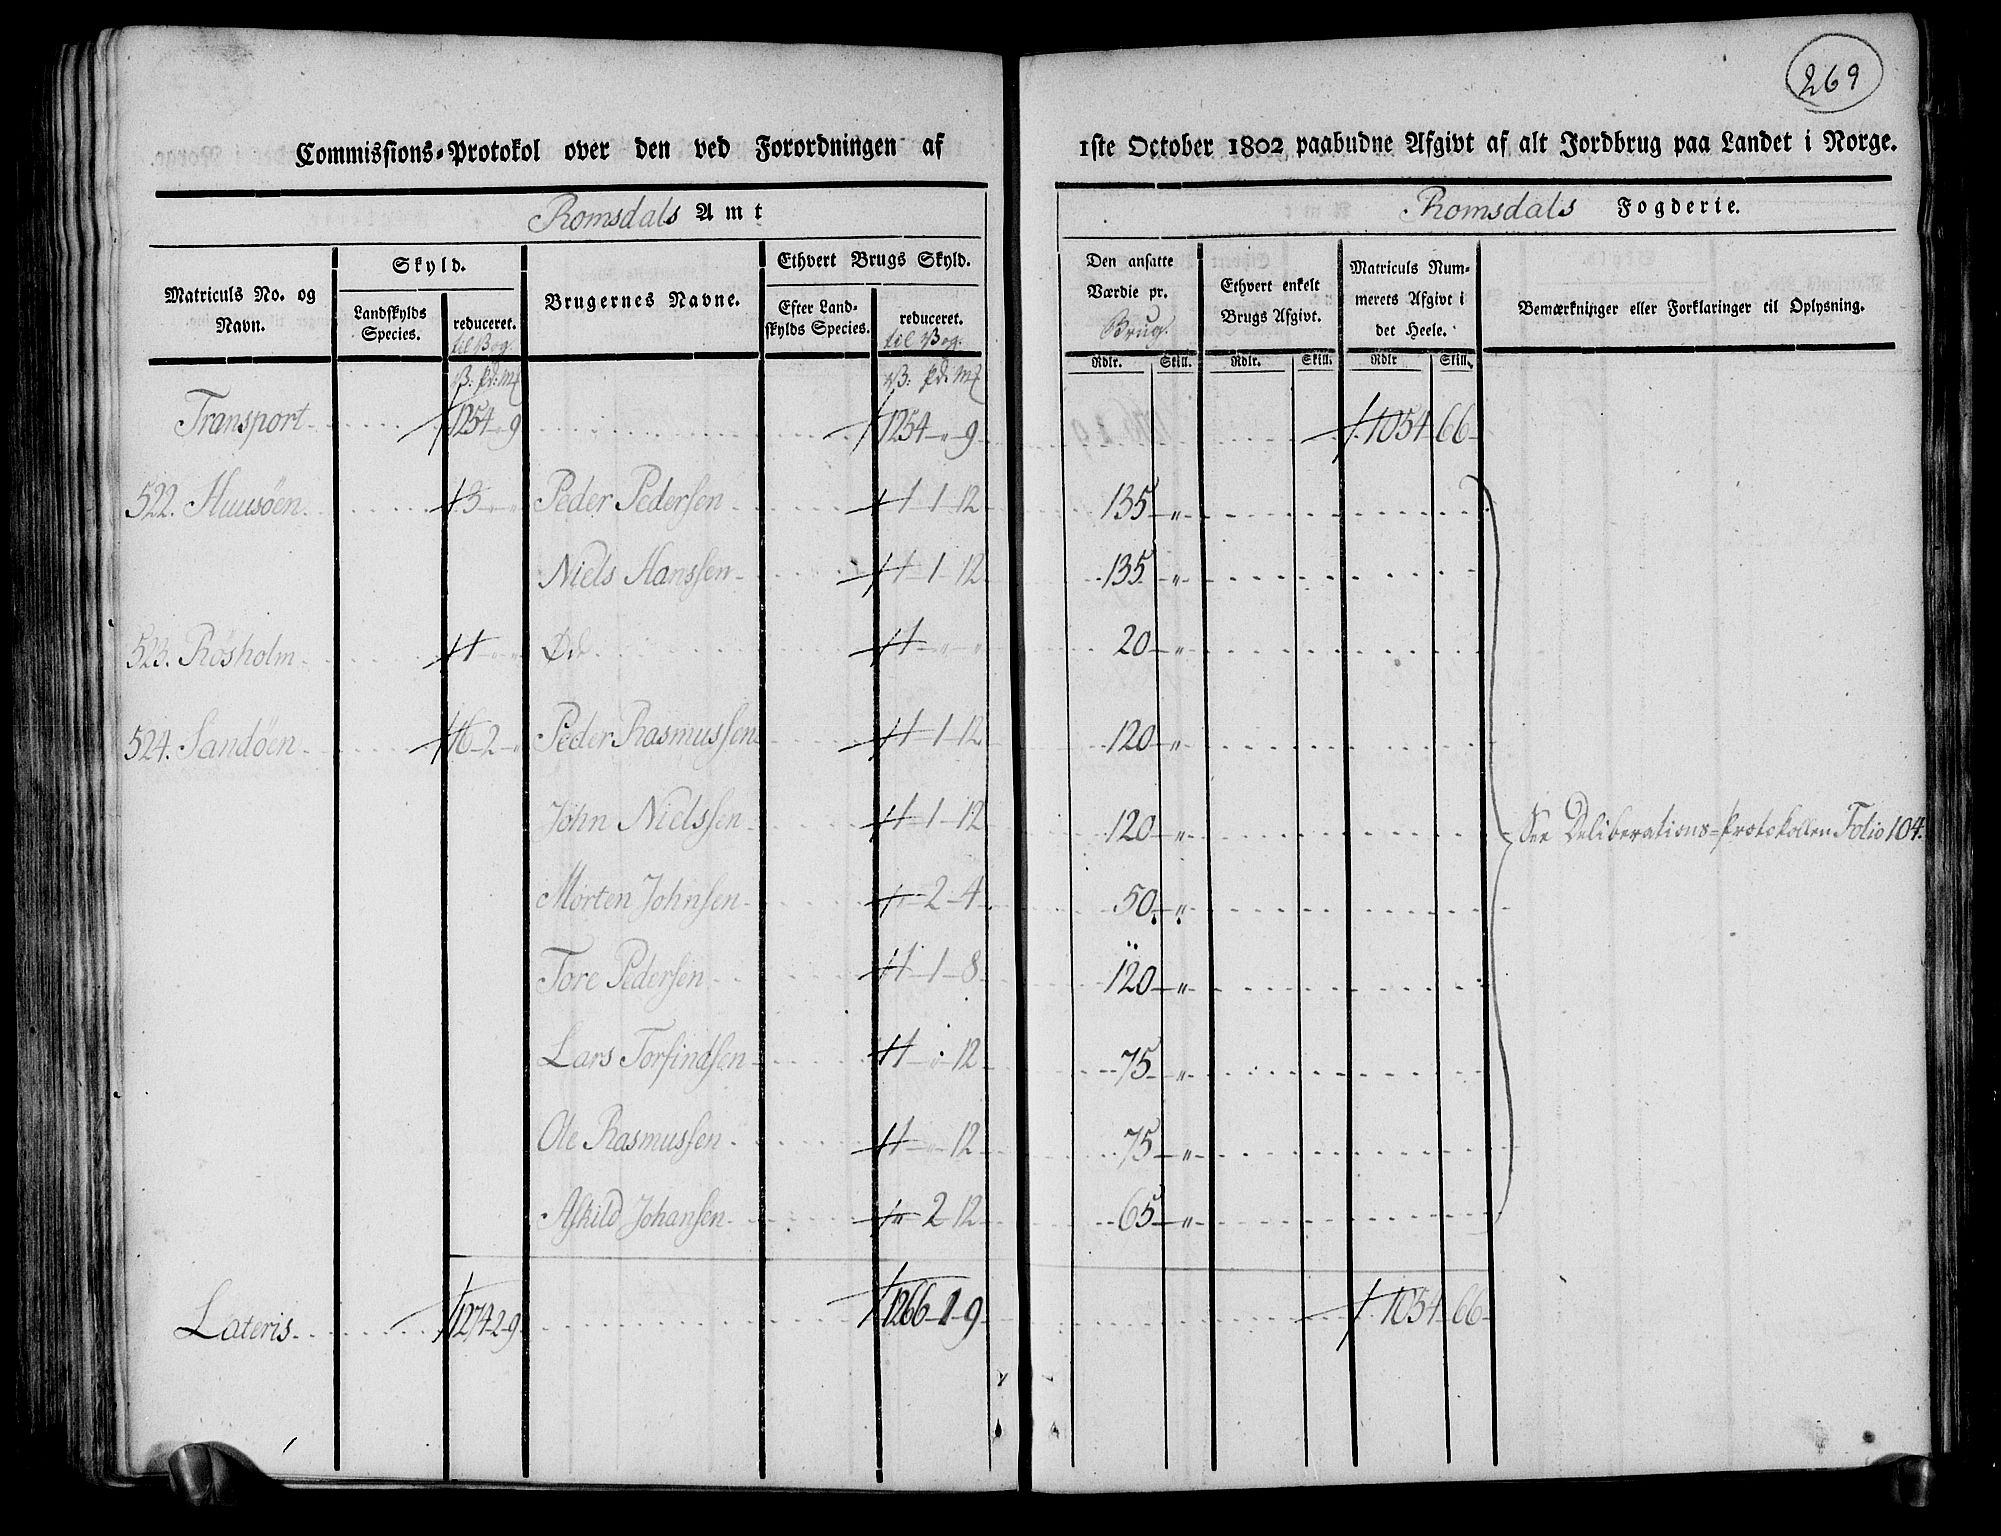 269
Commissions-Protokol over den ved Forordningen af 1ste October 1802 paabudne Afgivt af alt Jordbrug paa Landet i Norge.
Romsdals Amt
Romsdals Fogderie.
Matriculs No. og Navn.
Skyld.
Landskylds Species.
reduceret. til Vog.
Brugernes Navne.
Ethvert Brugs Skyld.
Efter Landskylds Species.
reduceret. til Vog.
Den ansatte Værdie pr. Brug.
Ethvert enkelt Brugs Afgivt.
Matriculs Nummerets Afgivt i det Heele.
Bemærkninger eller Forklaringer til Oplysning.
V: Pd: M V: Pd: M Rdlr. Skill. Rdlr. Skill. Rdlr Skill.
Transport 1254 " 9 1254 - " - 9 1054 66
522. Huusøen 3 " " Peder Pedersen 1 - 1 - 12 135 - "
Niels Hanssen 1 - 1 - 12 135 - "
523. Røsholm 1 " " Øde 1 " " 20 - "
524. Sandøen 16 - 2 - " Peder Rasmussen 1 - 1 - 12 120 - "
John Nielssen 1 - 1 - 12 120 - "
Morten Johnsen " - 2 - 4 50 - "
Tore Pedersen 1 - 1 - 8 120 - "
Lars Torfindsen 1 - " - 12 75 - "
Ole Rasmussen 1 - " - 12 75 - "
Askild Johansen " - 2 - 12 65 - "
See Deliberations-Protokollen Folio 104.
Lateris 1274 - 2 - 9 1266 - 1 - 9 1054 66